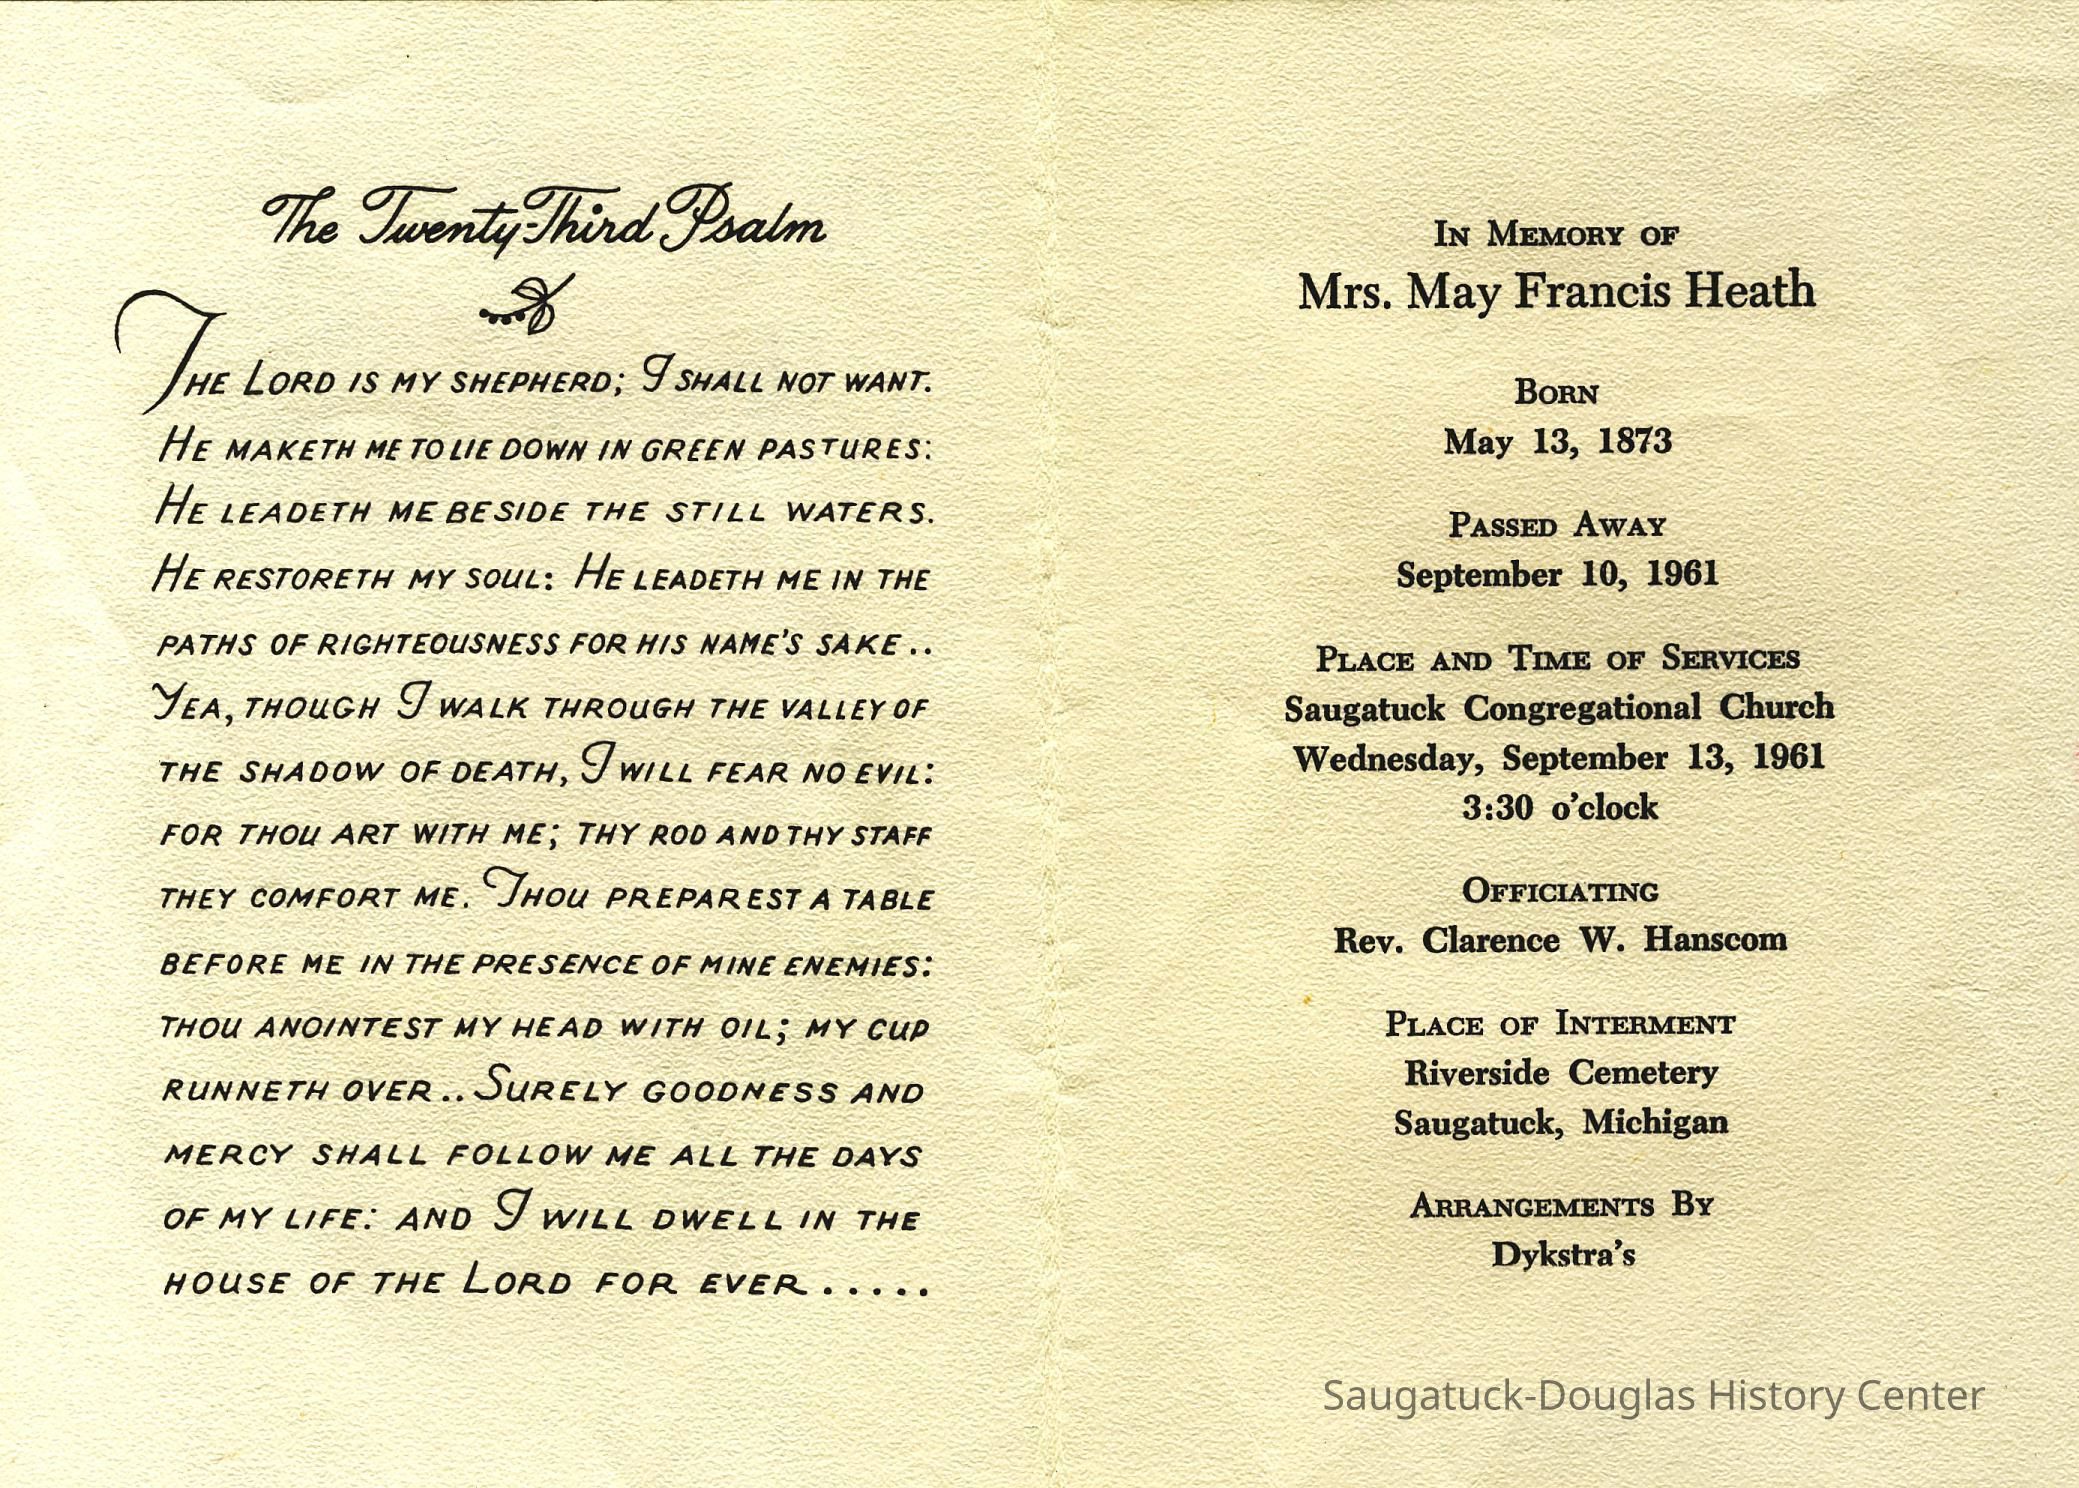 The Twenty-Third Psalm
The Lord is my shepherd; I shall not want.
He maketh me to lie down in green pastures:
He leadeth me beside the still waters.
He restoreth my soul: He leadeth me in the
paths of righteousness for his name's sake..
Yea, though I walk through the valley of
the shadow of death, I will fear no evil:
for thou art with me; thy rod and thy staff
they comfort me. Thou preparest a table
before me in the presence of mine enemies:
thou anointest my head with oil; my cup
runneth over.. Surely goodness and
mercy shall follow me all the days
of my life: and I will dwell in the
house of the Lord for ever.....
In Memory of
Mrs. May Francis Heath
Born
May 13, 1873
Passed Away
September 10, 1961
Place and Time of Services
Saugatuck Congregational Church
Wednesday, September 13, 1961
3:30 o'clock
Officiating
Rev. Clarence W. Hanscom
Place of Interment
Riverside Cemetery
Saugatuck, Michigan
Arrangements By
Dykstra's
Saugatuck-Douglas History Center